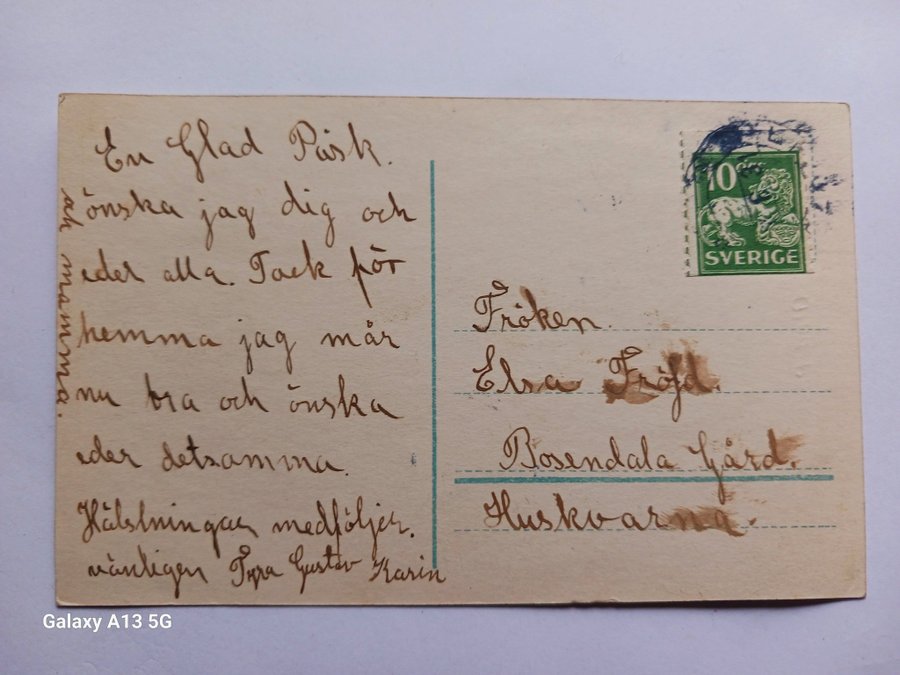 En Glad Påsk.
önska jag dig och
eder alla. Tack för
hemma jag mår
nu bra och önska
eder detsamma.
Hälsningar medföljer.
vänligen Tyra Gustav Karin
och mamma.
10 öre
SVERIGE
Fröken.
Elsa Fröjd.
Rosendala Gård.
Huskvarna.
Galaxy A13 5G